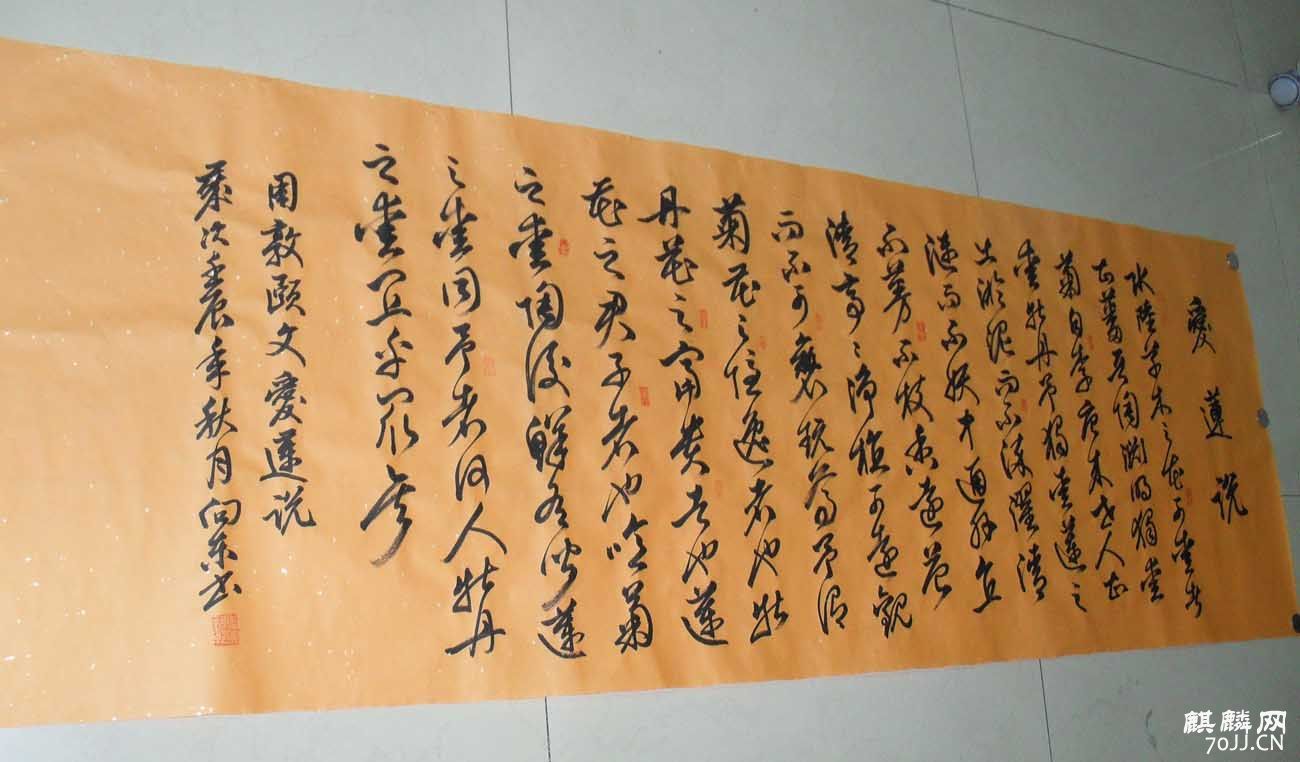 愛蓮说
水陸草木之花可愛者
甚蕃晋陶渊明獨愛
菊自李唐来世人甚
愛牡丹予獨愛蓮之
出淤泥而不染濯清
漣而不妖中通外直
不蔓不枝香遠益
清亭〻净植可遠觀
而不可褻玩焉予謂
菊花之隱逸者也牡
丹花之富貴者也蓮
花之君子者也噫菊
之愛陶後鮮有聞蓮
之愛同予者何人牡丹
之愛宜乎眾矣
周敦颐文愛蓮说
歲次壬辰年秋月向东书
麒麟网
70JJ.CN